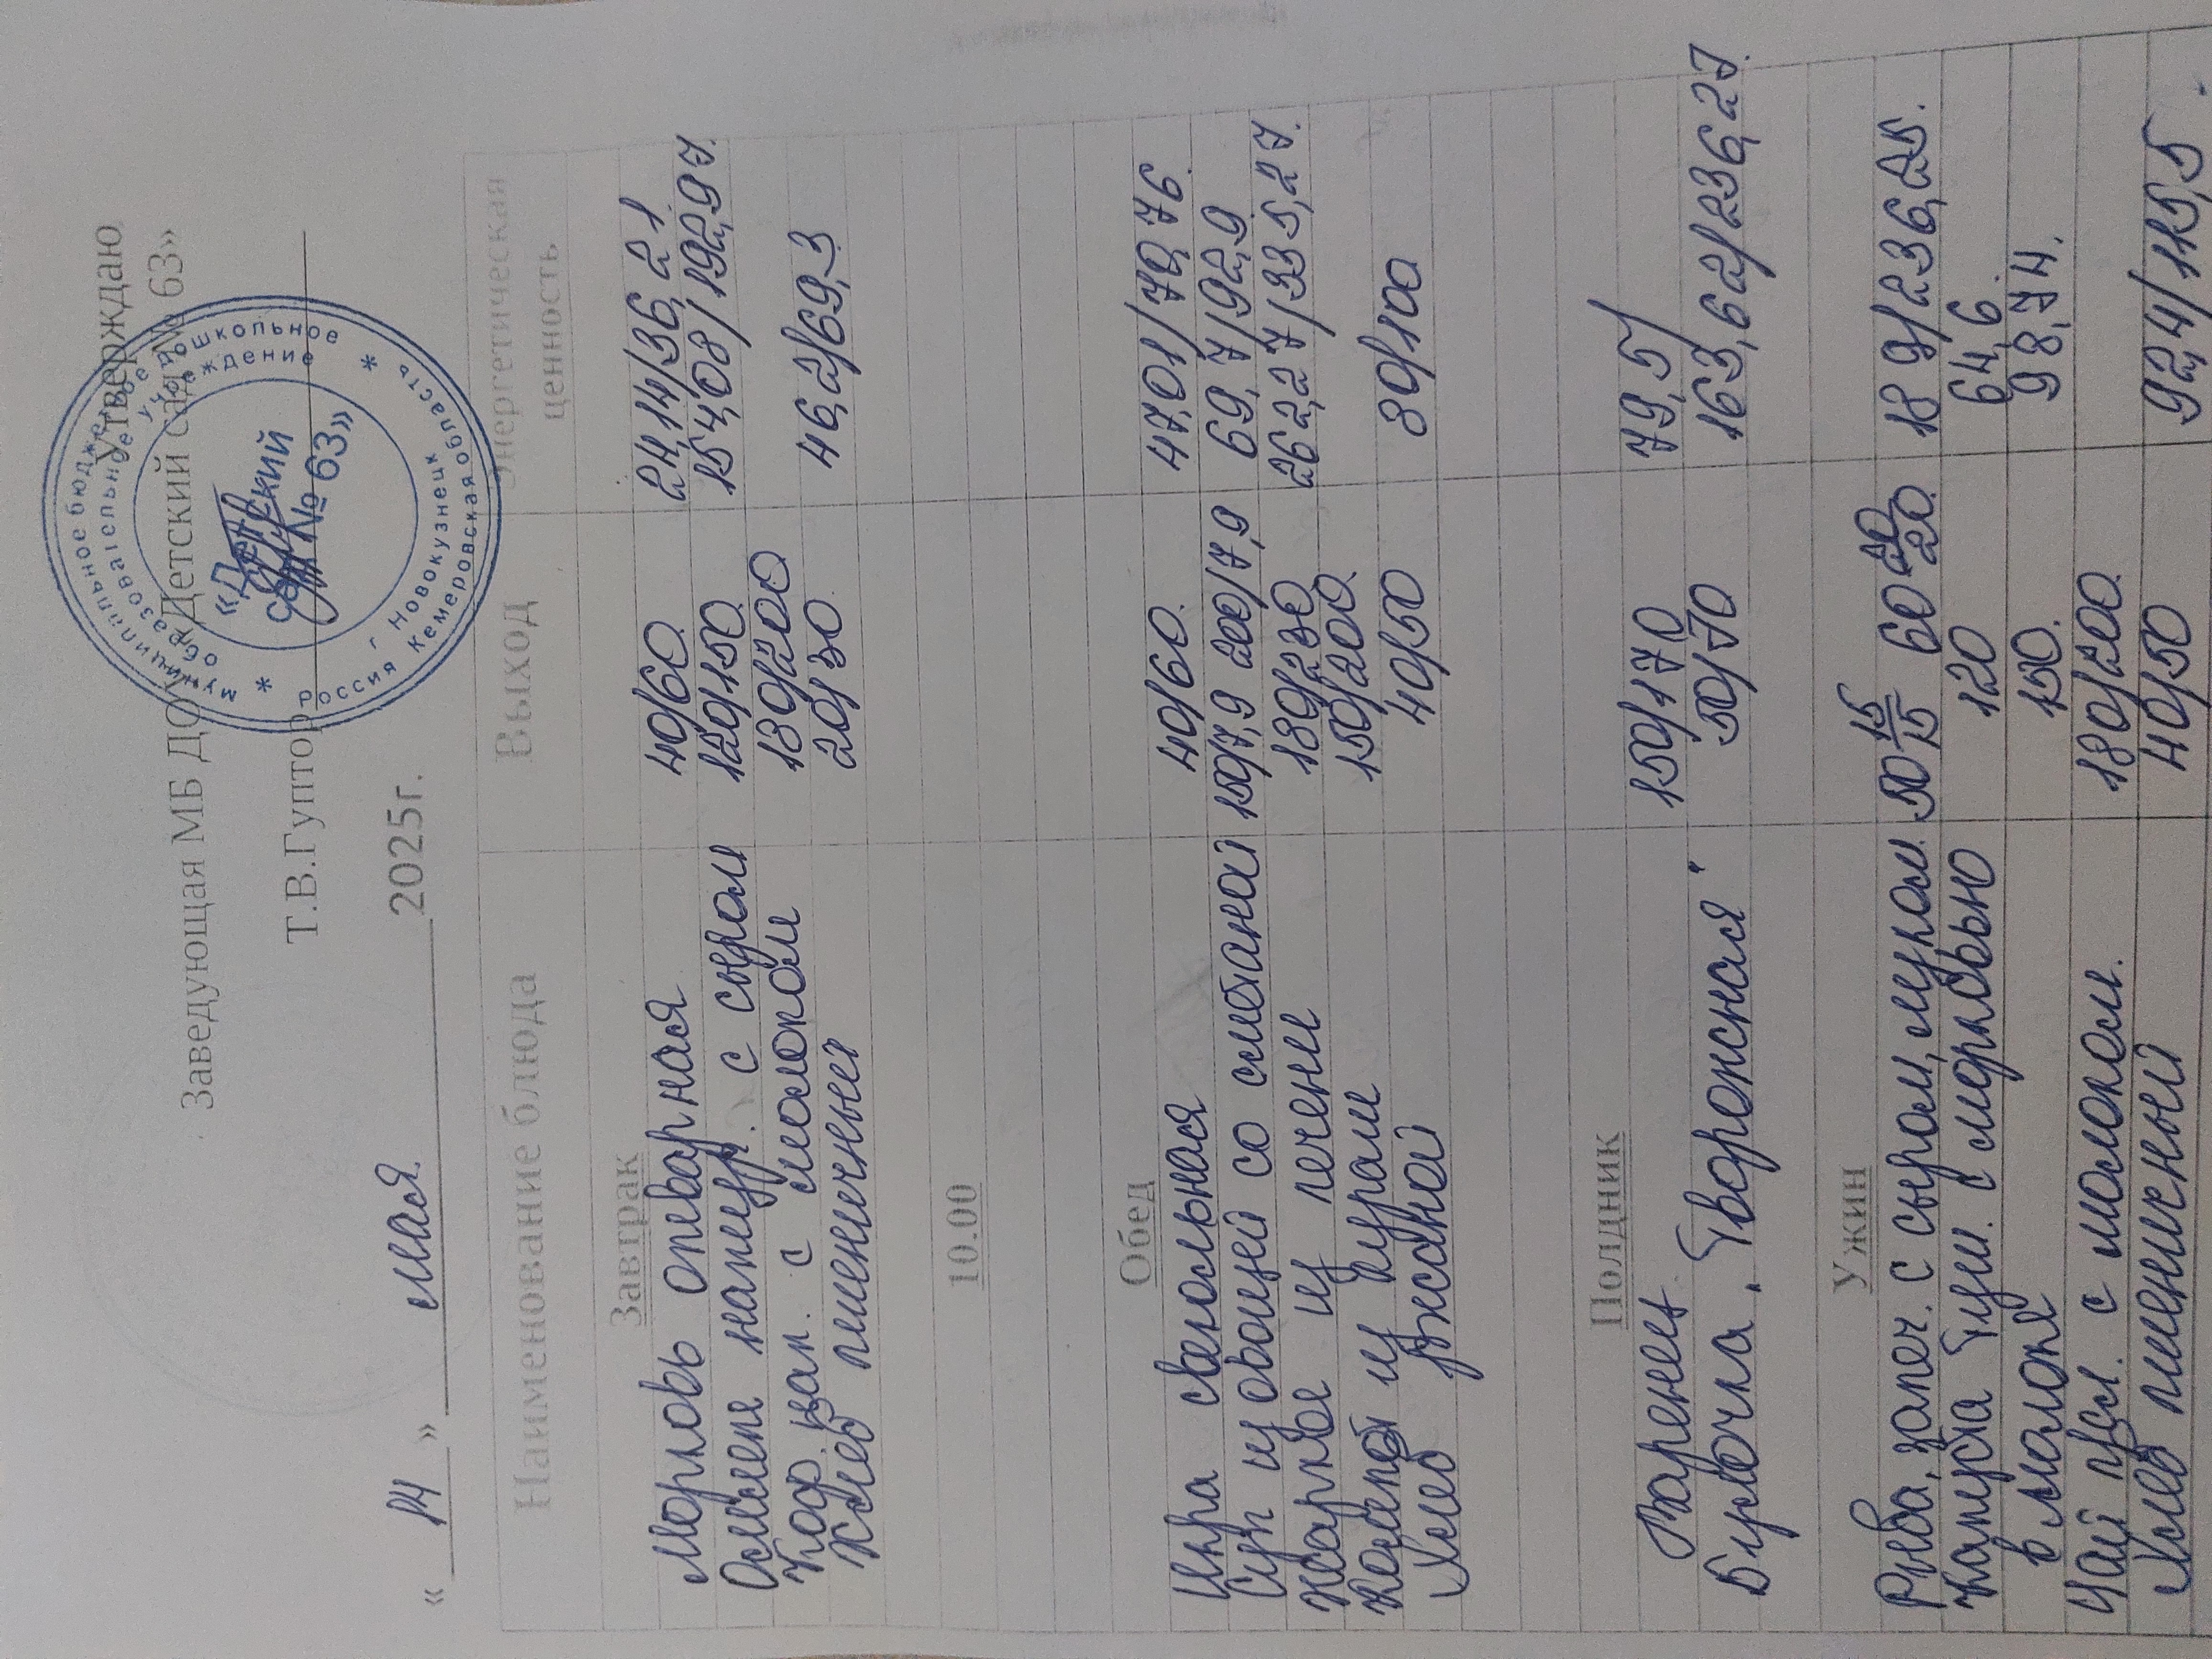 Утверждаю
Заведующая МБ ДОУ «Детский сад № 63»
Т.В.Гуптор
муниципальное бюджетное дошкольное
образовательное учреждение
«Детский
сад № 63»
г Новокузнецк
Россия Кемеровская область
« 14 » мая 2025г.
Наименование блюда Выход Энергетическая ценность
Завтрак
Морковь отварная 40/60 24,14/36,21
Омлет натур. с сыром 120/150 154,08/192,97
Коф. нап. с молоком 180/200
Хлеб пшеничный 20/30 46,2/69,3
10.00
Обед
Икра свекольная 40/60 47,01/70,76
Суп из овощей со сметаной 150/7,9 200/7,9 69,7/92,9
Жаркое из печени 180/230 262,27/335,27
Компот из кураги 150/200
Хлеб ржаной 40/50 80/100
Полдник
Варенец 150/170 79,5/
Булочка "Творожная" 50/70 163,62/236,27
Ужин
Рыба, запеч. с сыром, луком 50 15/15 60 20/20 189/236,25
Капуста туш. с морковью 120 64,6
в молоке 150 98,74
Чай усл. с молоком 180/200
Хлеб пшеничный 40/50 92,4/115,5